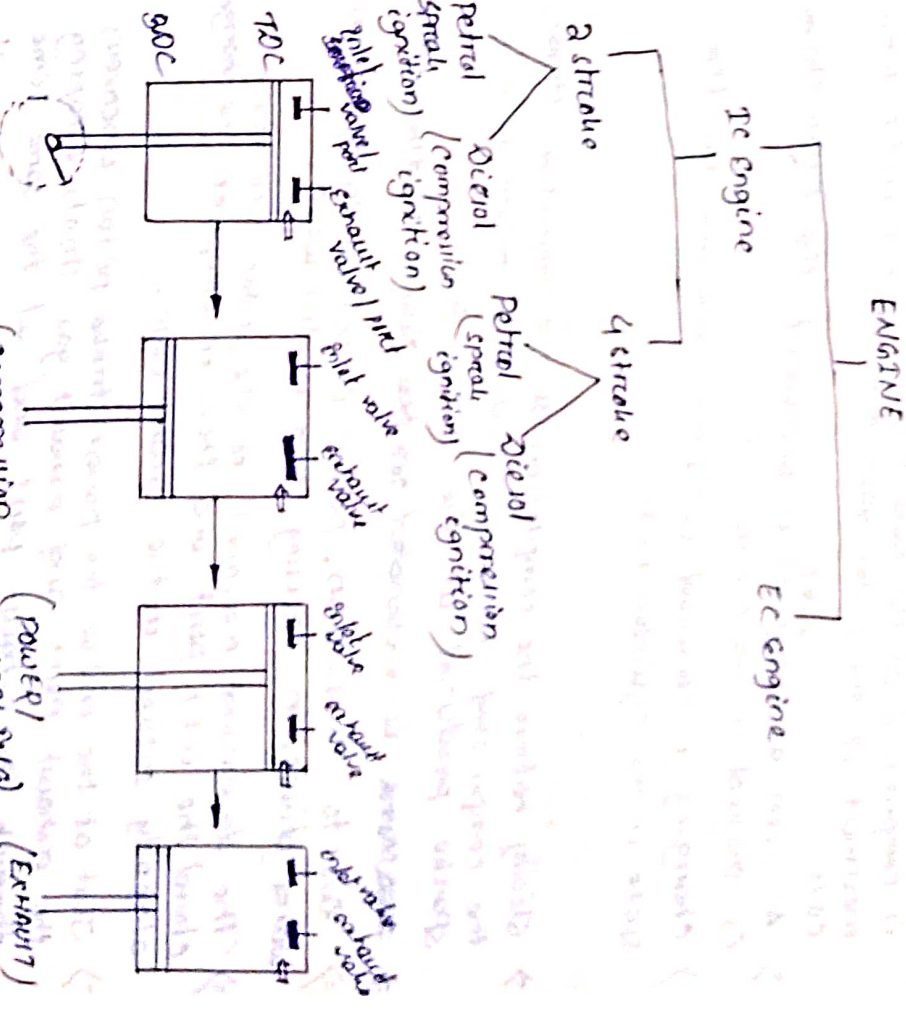 ENGINE
IC Engine
EC Engine
2 stroke
4 stroke
Petrol
spark
ignition)
Diesel
(compression
ignition)
Petrol
(spark
ignition)
Diesel
(compression
ignition)
TDC
BDC
inlet
valve/
port
exhaust
valve/port
inlet valve
exhaust
valve
inlet
valve
exhaust
valve
inlet valve
exhaust
valve
(POWER/
(EXHAUST)